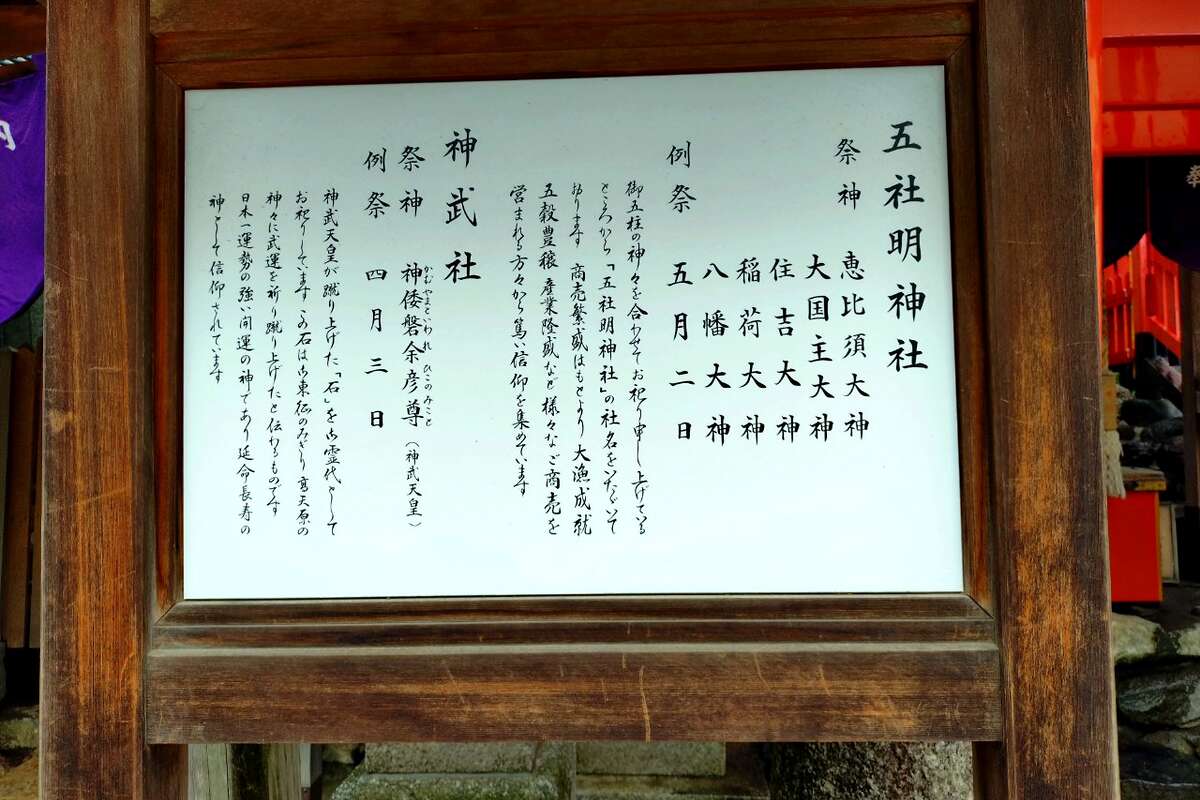 五社明神社
祭神 恵比須大神
大国主大神
住吉大神
稲荷大神
八幡大神
例祭 五月二日
御五柱の神々を合わせてお祀り申し上げている
ところから「五社明神社」の社名をいただいて
おります 商売繁盛はもとより 大漁成就
五穀豊穣 産業隆盛など 様々なご商売を
営まれる方々から篤い信仰を集めています
神武社
祭神 神倭磐余彦尊（神武天皇）
かむやまといわれ ひこのみこと
例祭 四月三日
神武天皇が蹴り上げた「石」を御霊代として
お祀りしています この石は御東征のみぎり 高天原の
神々に武運を祈り蹴り上げたと伝わるものです
日本一運勢の強い開運の神であり延命長寿の
神として信仰されています